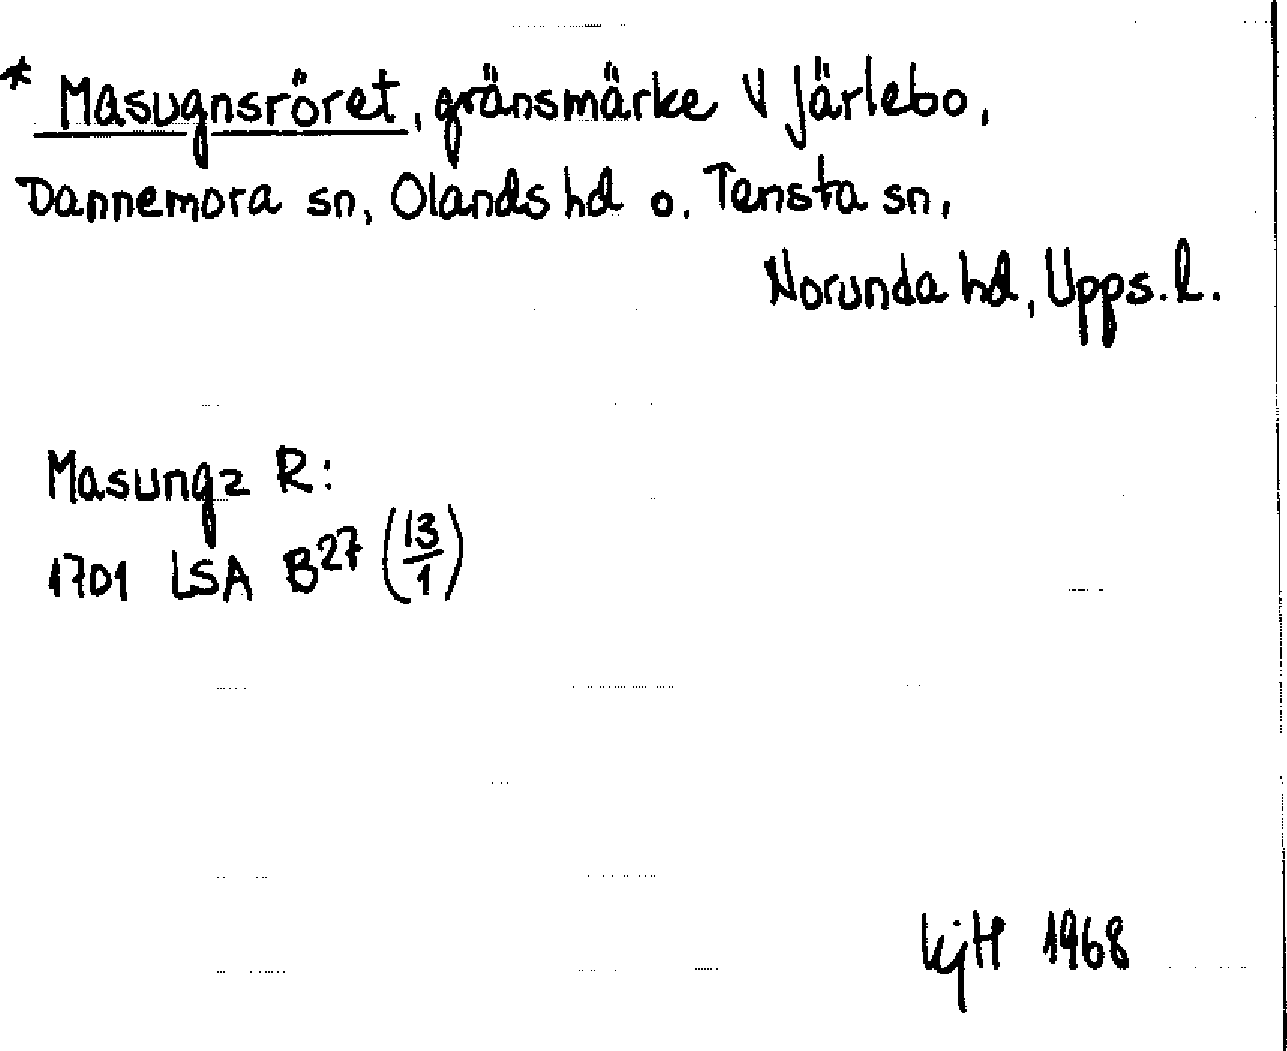 * Masugnsröret, gränsmärke V Järlebo,
Dannemora sn, Olands hd o. Tensta sn,
Norunda hd, Upps. l.
Masungz R:
1701 LSA B27 (13/1)
kjH 1968